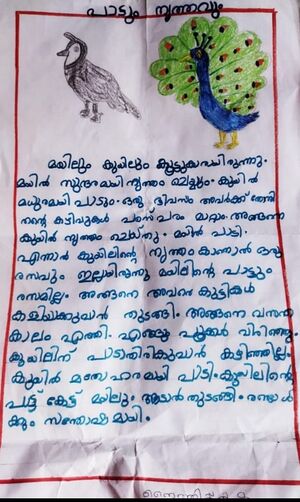 പാട്ടും നൃത്തവും
മയിലും കുയിലും കൂട്ടുകാരായിരുന്നു.
മയിൽ സുന്ദരമായി നൃത്തം ചെയ്യും. കുയിൽ
മധുരമായി പാടും. ഒരു ദിവസം അവർക്ക് തോന്നി
തന്റെ കഴിവുകൾ പരസ്പരം മാറ്റാം. അങ്ങനെ
കുയിൽ നൃത്തം ചെയ്തു. മയിൽ പാടി.
എന്നാൽ കുയിലിന്റെ നൃത്തം കാണാൻ ഒരു
രസവും ഇല്ലായിരുന്നു മയിലിന്റെ പാട്ടും
രസമില്ല. അങ്ങനെ അവരെ കുട്ടികൾ
കളിയാക്കുവാൻ തുടങ്ങി. അങ്ങനെ വസന്ത
കാലം എത്തി. എങ്ങും പൂക്കൾ വിരിഞ്ഞു.
കുയിലിന് പാടാതിരിക്കുവാൻ കഴിഞ്ഞില്ല.
കുയിൽ മനോഹരമായി പാടി. കുയിലിന്റെ
പാട്ട് കേട്ട് മയിലും ആടാൻ തുടങ്ങി. രണ്ടാൾ
ക്കും സന്തോഷമായി.